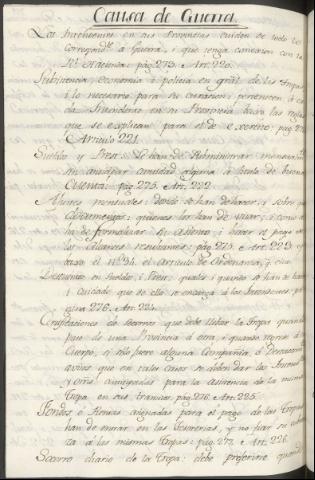 Causa de Guerra.
Los Intendentes en sus Provincias cuiden de todo lo
correspond.te á Guerra, i que tenga conexion con la
R.l Hacienda: pág. 275. Art. 220.
Subsistencia, economia i policia en gral. de las Tropas
i lo necesario para su curacion; pertenecen á ca
da Intendente en su Provincia bajo las reglas
que se explican para el de exercito: pag. 275
Articulo 221.
Sueldo y Prest. Se han de Administrar mensualm.te
sin anticipar cantidad alguna á titulo de buena
cuenta: pág. 275. Art. 222.
Ajustes mensuales: donde se han de hacer; i sobre que
documentos: quienes los han de ; i como se
ha de formalizar su asiento, i hacer el pago de
los Alcances resultantes: pág. 275. Art. 223 y
bajo el N.o 34. el Articulo de Ordenanza, q.e cita.
Descuentos en Sueldos, i Prest. quales i quando se han de hacer
i cuidado que de ello se encarga á los Intendentes: pá
gina 276. Art. 224.
Certificaciones de Socorros que debe llebar la Tropa quando
pase de una Provincia á otra, i quando regrese á su
Cuerpo, si solo fuere alguna Compañia, ó Destacam.to
avisos que en tales casos se deben dar los Intend.tes
y of.s asignados para la asistencia de la misma
Tropa en sus transitos. pág. 276. Art. 225.
Fondos ó Arcas asignadas para el pago de las Tropas
han de entrar en las Tesorerias, y no fiar su cobran
za á las mismas Tropas: pág. 277. Art. 226.
Socorro diario de la Tropa: debe preferirse quando